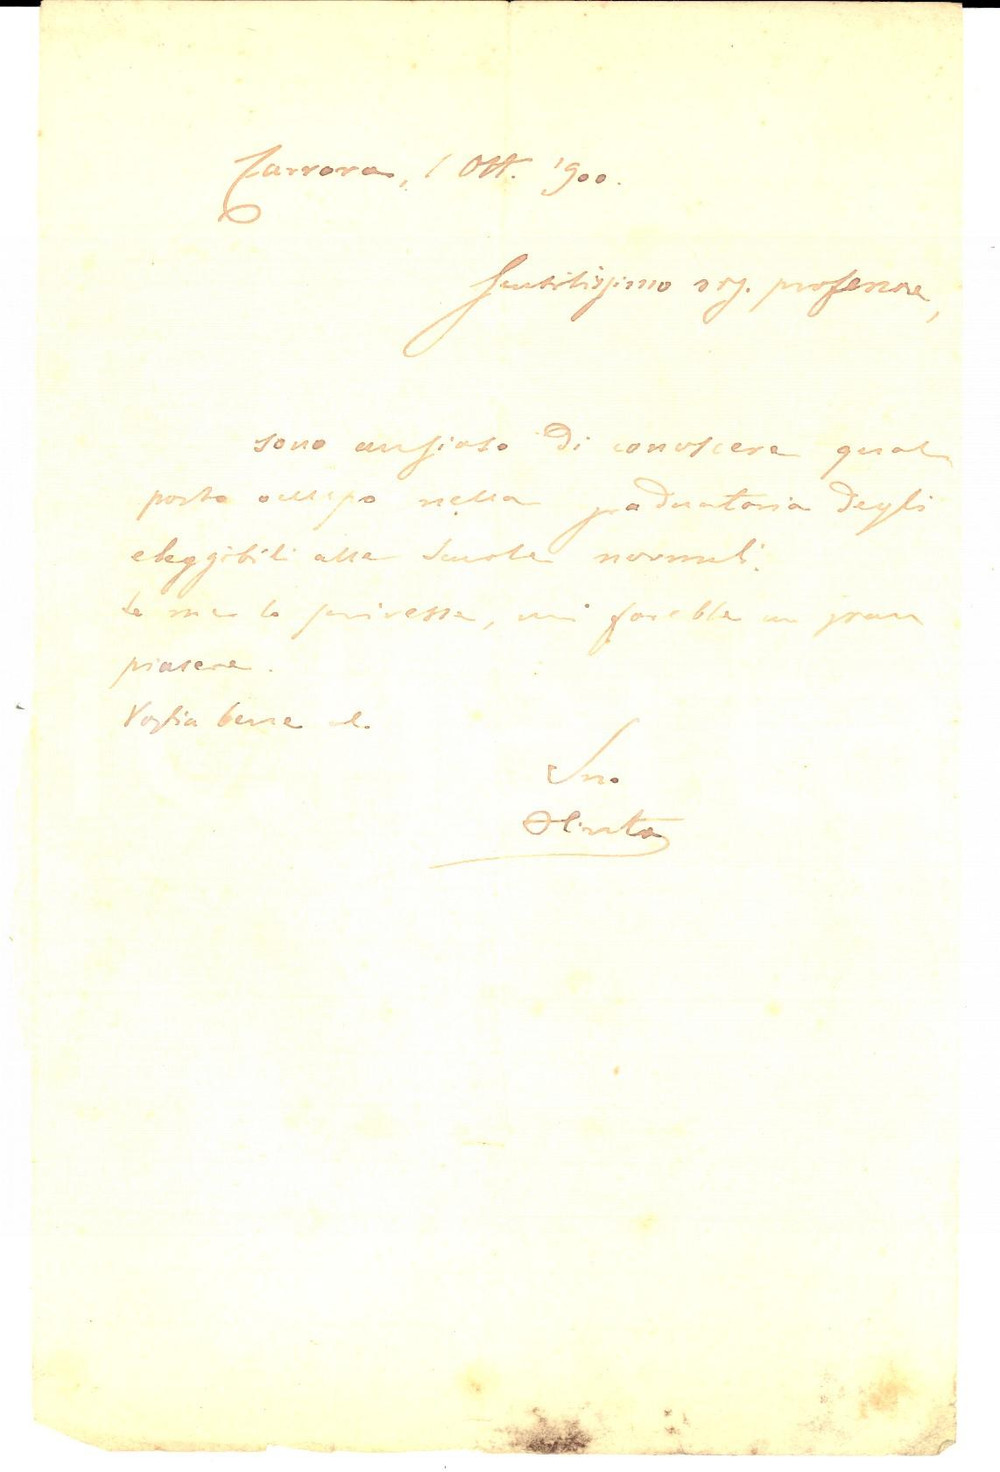 Carrara, 1 Ott. '900.
Gentilissimo sig. professore,
sono ansioso di conoscere qual
posto occupo nella graduatoria degli
eleggibili alle Scuole normali.
Se me lo scrivesse, mi farebbe un gran
piacere.
Voglia bene al
Suo
Olinto